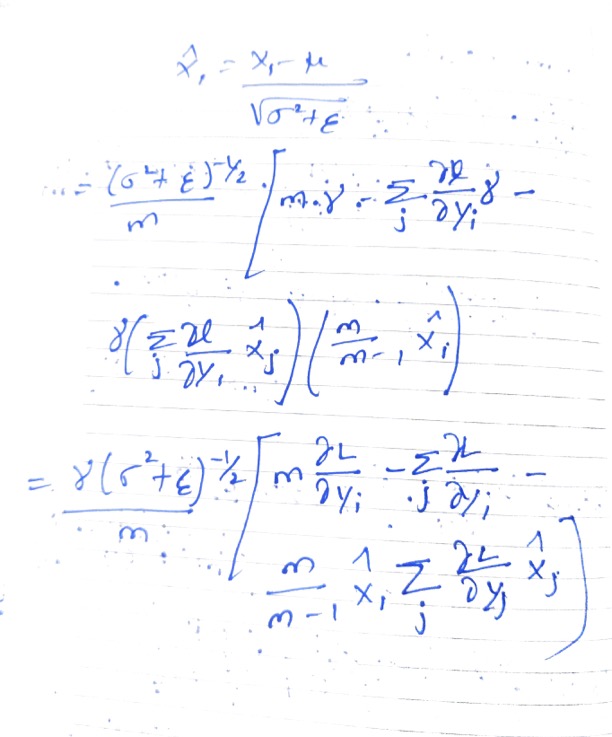 x̂₁ = (x₁ - μ) / √(σ² + ε)
= (σ² + ε)^(-1/2) / m [ m·γ - Σ_j ∂l/∂y_i γ -
γ( Σ_j ∂l/∂y_i x̂_j ) ( m/(m-1) x̂_i )
= γ(σ² + ε)^(-1/2) / m [ m ∂L/∂y_i - Σ_j ∂L/∂y_i -
m/(m-1) x̂_i Σ_j ∂L/∂y_j x̂_j ]